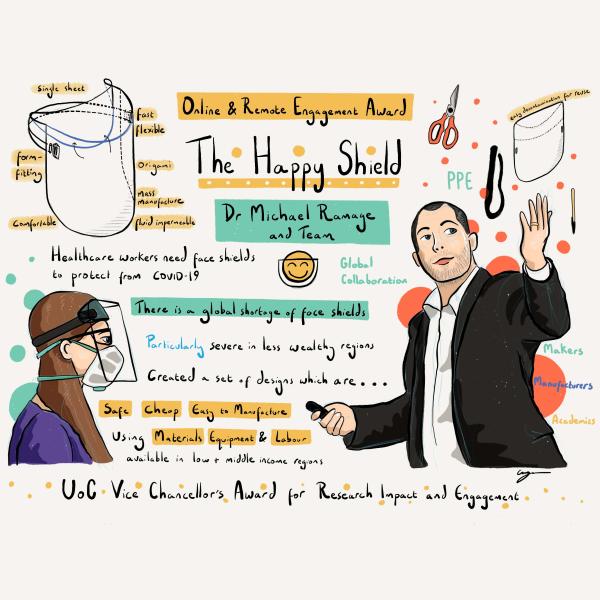 Single sheet
fast
flexible
form-
fitting
Origami
mass
manufacture
Comfortable
fluid impermeable
Online & Remote Engagement Award
The Happy Shield
Dr Michael Ramage
and Team
easy decontamination for reuse
PPE
Healthcare workers need face shields
to protect from COVID-19
Global
Collaboration
There is a global shortage of face shields
Particularly severe in less wealthy regions
Created a set of designs which are...
Safe Cheap Easy to Manufacture
Using Materials Equipment & Labour
available in low + middle income regions
Makers
Manufacturers
Academics
UoC Vice Chancellor's Award for Research Impact and Engagement